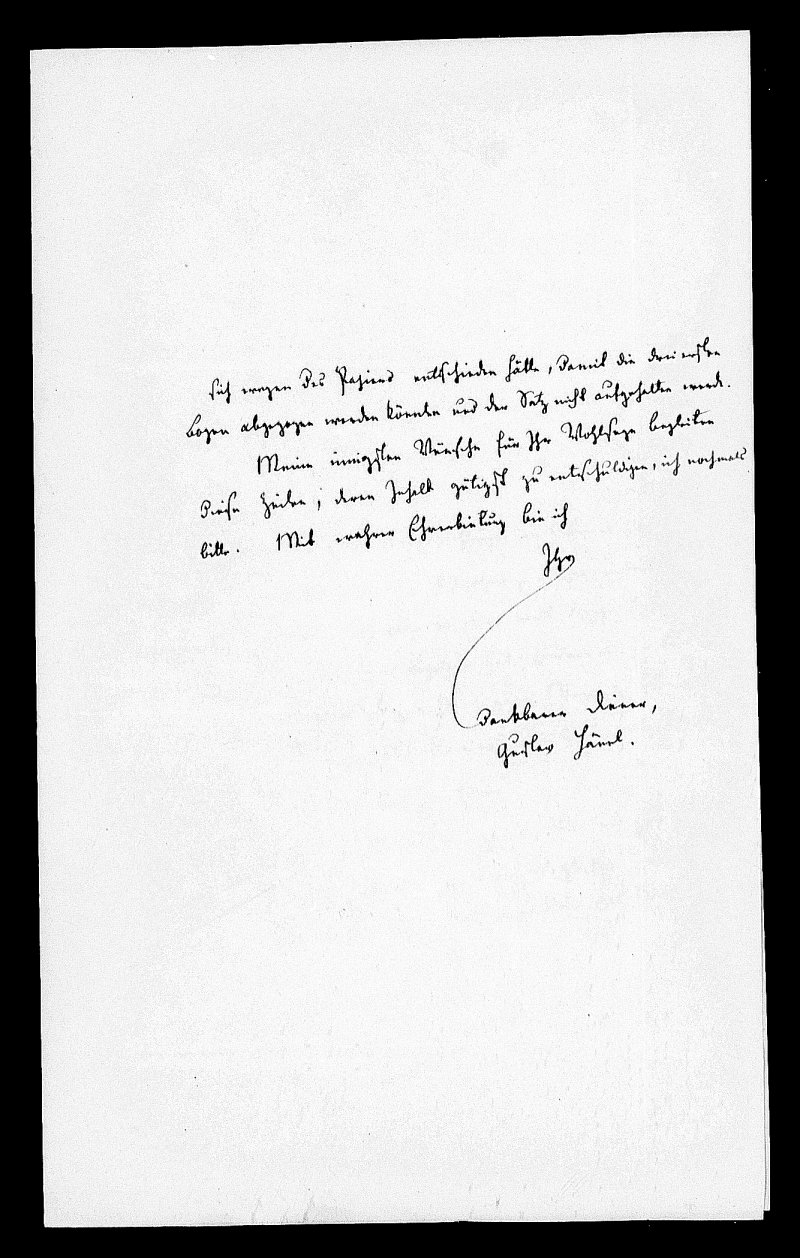 sich wegen des Papiers entschieden hätte, damit die drei ersten
Bogen abgezogen werden könnten und der Satz nicht aufgehalten werde.
Meine innigsten Wünsche für Ihr Wohlseyn begleiten
diese Zeilen; deren Inhalt gütigst zu entschuldigen, ich nochmals
bitte. Mit wahrer Ehrerbietung bin ich
Ihr
dankbarer Diener,
Gustav Hänel.